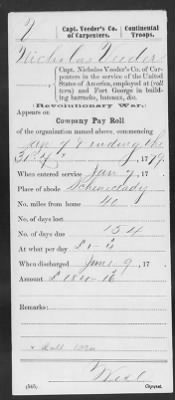 V
Capt. Veeder's Co. of Carpenters.
Continental Troops.
Nicholas Veeder
Capt. Nicholas Veeder's Co. of Car-
penters in the service of the United
States of America, employed at (roll
torn) and Fort George in build-
ing barracks, bateaux, &c.
Revolutionary War:
Appears on
Company Pay Roll
of the organization named above, commencing
Jan 7 & ending the
1779.
When entered service Jan 7, 17
Place of abode Schenectady
No. miles from home 40
No. of days lost
No. of days due 154
At what per day
When discharged June 9, 17
Amount £
Remarks:
* Roll
(545)
Copyist.